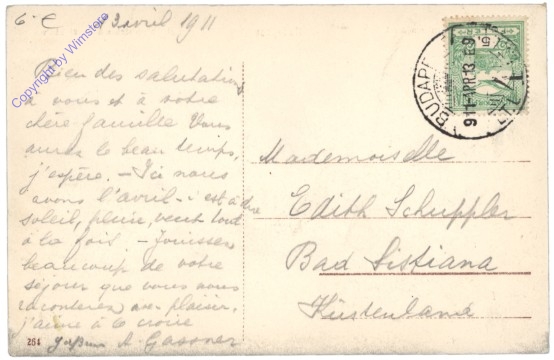 3 avril 1911
Copyright by Wimstore
Bien des salutations
à vous et à votre
chère famille Vous
aurez le beau temps,
j'espère. - Ici nous
avons l'avril - c'est à dire
soleil, pluie, vent tout
à la fois. - Jouissez
beaucoup de votre
séjour que vous nous
raconterez avec plaisir,
j'aime à le croire
A. Gassner
264
BUDAPEST
911 APR 13
Mademoiselle
Edith Schuppler
Bad Sistiana
Küstenland